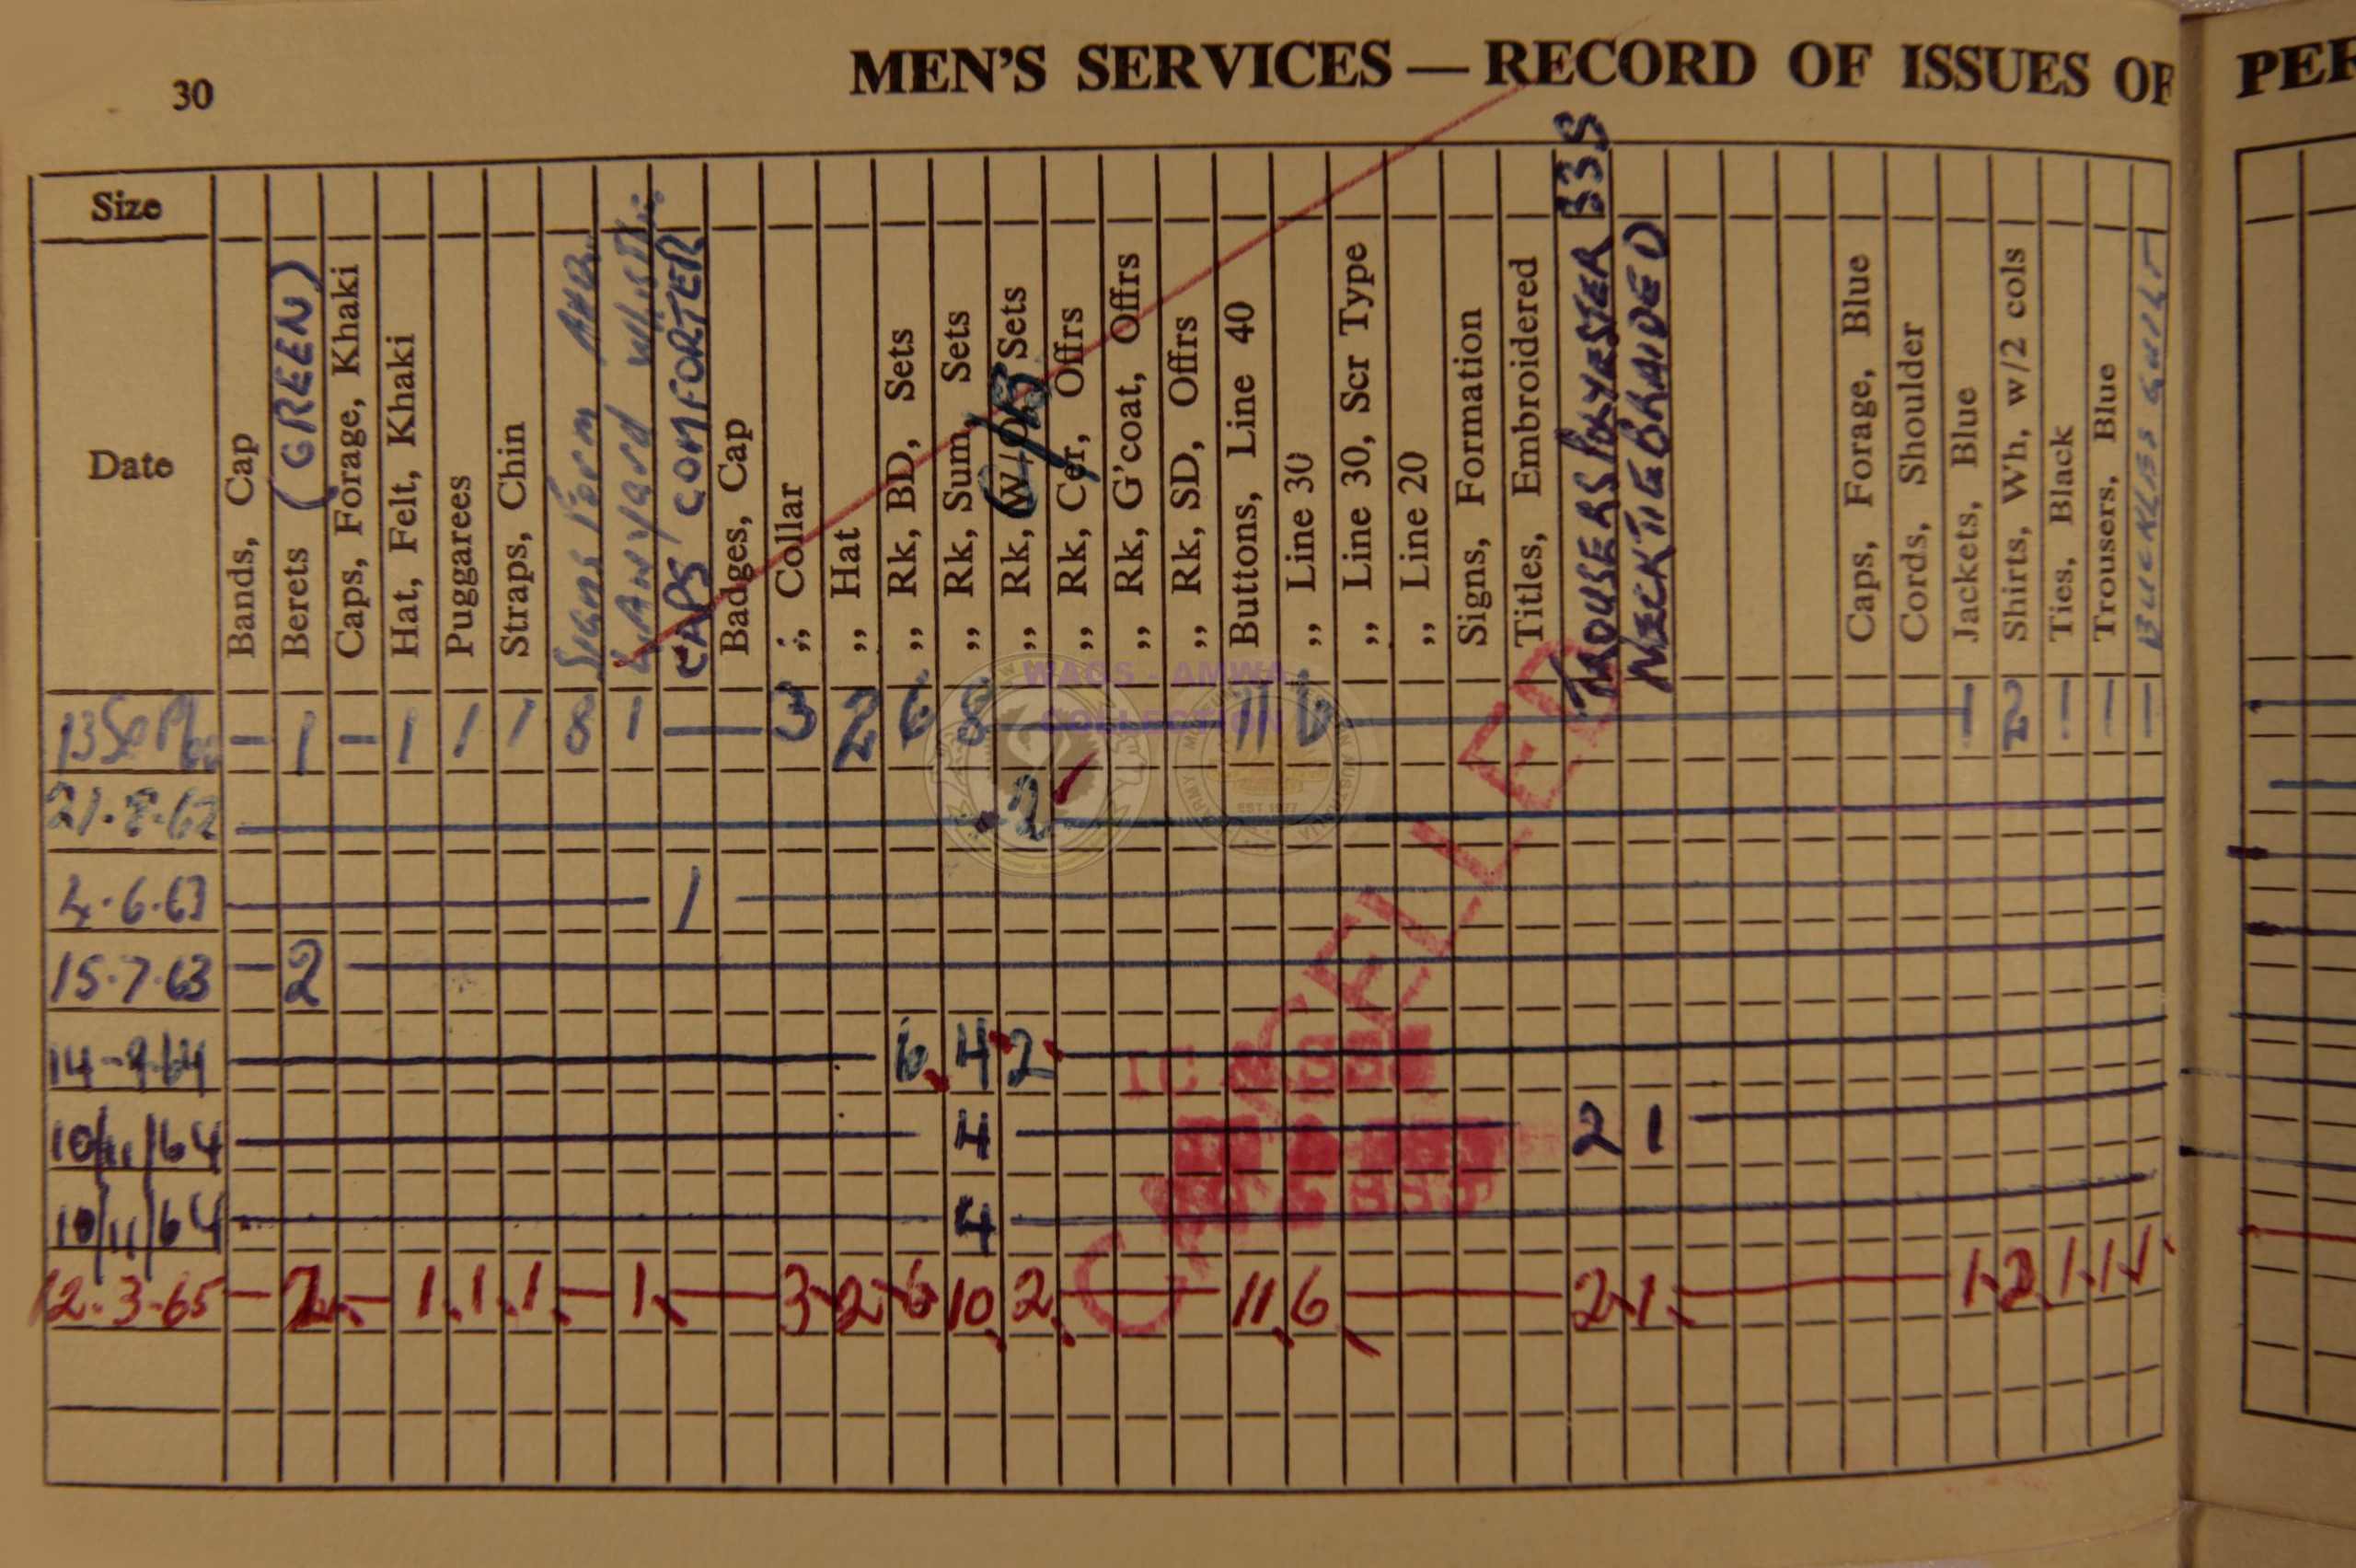 30
MEN'S SERVICES — RECORD OF ISSUES OF
PER
Size
Date
Bands, Cap
Berets (GREEN)
Caps, Forage, Khaki
Hat, Felt, Khaki
Puggarees
Straps, Chin
Signs Form
Lanyard
CAPS COMFORTER
Badges, Cap
,, Collar
,, Hat
,, Rk, BD, Sets
,, Rk, Sum, Sets
,, Rk, (W/OR Sets
,, Rk, Cer, Offrs
,, Rk, G'coat, Offrs
,, Rk, SD, Offrs
Buttons, Line 40
,, Line 30
,, Line 30, Scr Type
,, Line 20
Signs, Formation
Titles, Embroidered
TROUSERS POLYESTER 33S
NECKTIE BRAIDED
Caps, Forage, Blue
Cords, Shoulder
Jackets, Blue
Shirts, Wh, w/2 cols
Ties, Black
Trousers, Blue
13 Sept — 1 — 1 1 1 8 1 — 3 2 6 8 — 11 6 — 1 2 1 1 1
21.8.62 — 2 —
4.6.63 — 1 —
15.7.63 — 2 —
14-9-64 — 6 4 2 —
10/11/64 — 4 — 2 1 —
10/11/64 — 4 —
12.3.65 — 2 — 1 1 1 — 1 — 3 2 6 10 2 — 11 6 — 2 1 — 1 2 1 1 1
WAGS - AMWA
COLLECTION
EST 1977
CANCELLED